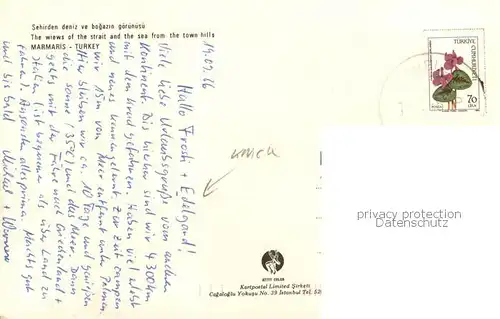 Şehirden deniz ve boğazın görünüsü
The wiews of the strait and the sea from the town hills
MARMARIS - TURKEY
19.09.86
Hallo Frosh + Edelgard!
Viele liebe Urlaubsgrüße vom anderen
Kontinent. Bis hierher sind wir 4300 km
mit dem gefahren. Haben viel erlebt
und neues kennengelernt. Zur Zeit campen
wir 15m vom Meer entfernt unter Palmen.
Hier bleiben wir ca. 10 Tage und genießen
die Sonne (35°C) und das Meer. Dann
geht's mit der Fähre nach Griechenland +
Italien (ist bequemer als über Land zu
fahren). Ansonsten alles prima. Macht's gut
und bis bald
+ Werner
TÜRKİYE
CUMHURİYETİ
70
LİRA
KEYİF KOLOR
Kartpostal Limited Şirketi
Cağaloğlu Yokuşu No. 39 İstanbul Tel. 52
privacy protection
Datenschutz